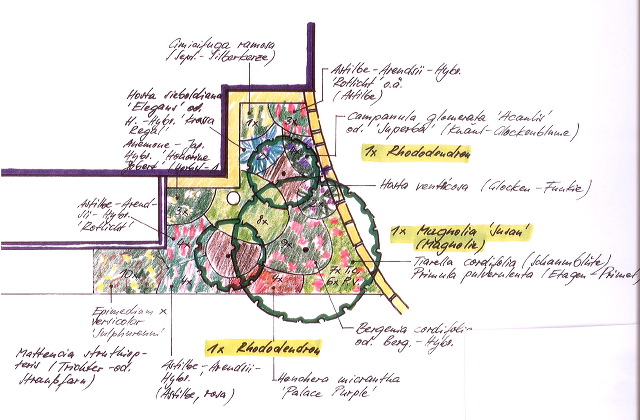 Cimicifuga ramosa
(Sept.-Silberkerze)
Astilbe-Arendsii-Hybr.
'Rotlicht' o.ä.
(Astilbe)
Hosta sieboldiana
'Elegans' od.
H.-Hybr.
Regal'
Anemone-Jap.
Hybr. 'Honorine
Jobert'
Campanula glomerata 'Acaulis'
od. 'Superba' (Knäul-Glockenblume)
1x Rhododendron
Hosta ventricosa (Glocken-Funkie)
Astilbe-Arend-
sii-Hybr.
'Rotlicht'
1x Magnolia 'Susan'
(Magnolie)
Tiarella cordifolia (Schaumblüte)
Primula pulverulenta (Etagen-Primel)
1x
3x
3x
8x
4x
9x
10x
4x
4x
7x T.c.
6x P.v.
Epimedium x
versicolor
'Sulphureum'
Bergenia cordifolia
od. Berg.-Hybr.
1x Rhododendron
Matteucia struthiop-
teris (Trichter- od.
Straußfarn)
Astilbe-Arendsii-
Hybr.
(Astilbe, rosa)
Heuchera micrantha
'Palace Purple'